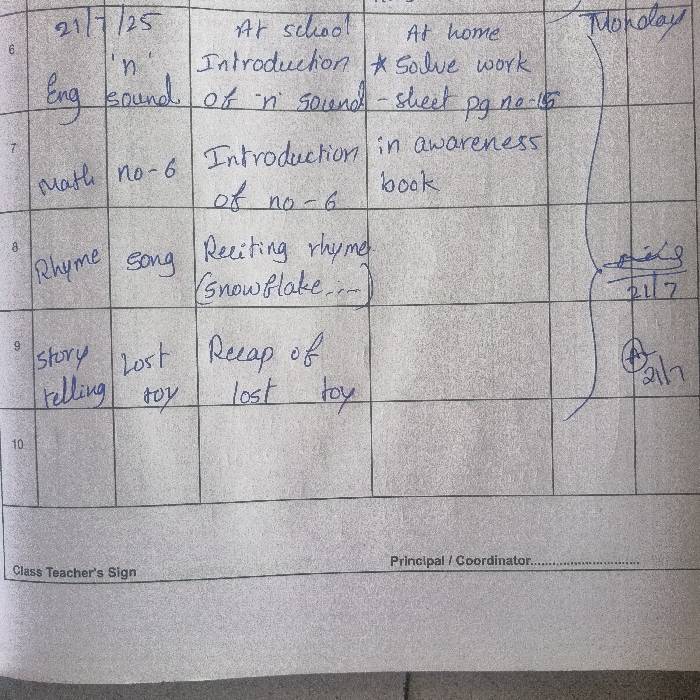 21/7/25 At school At home Monday
6 'n' Introduction * Solve work
Eng sound of 'n' sound - sheet pg no-15
7 Math no-6 Introduction in awareness
of no-6 book
8 Rhyme song Reciting rhyme
(snowflake....)
21/7
9 Story Lost Recap of
telling toy lost toy
21/7
10
Class Teacher's Sign Principal / Coordinator..............................